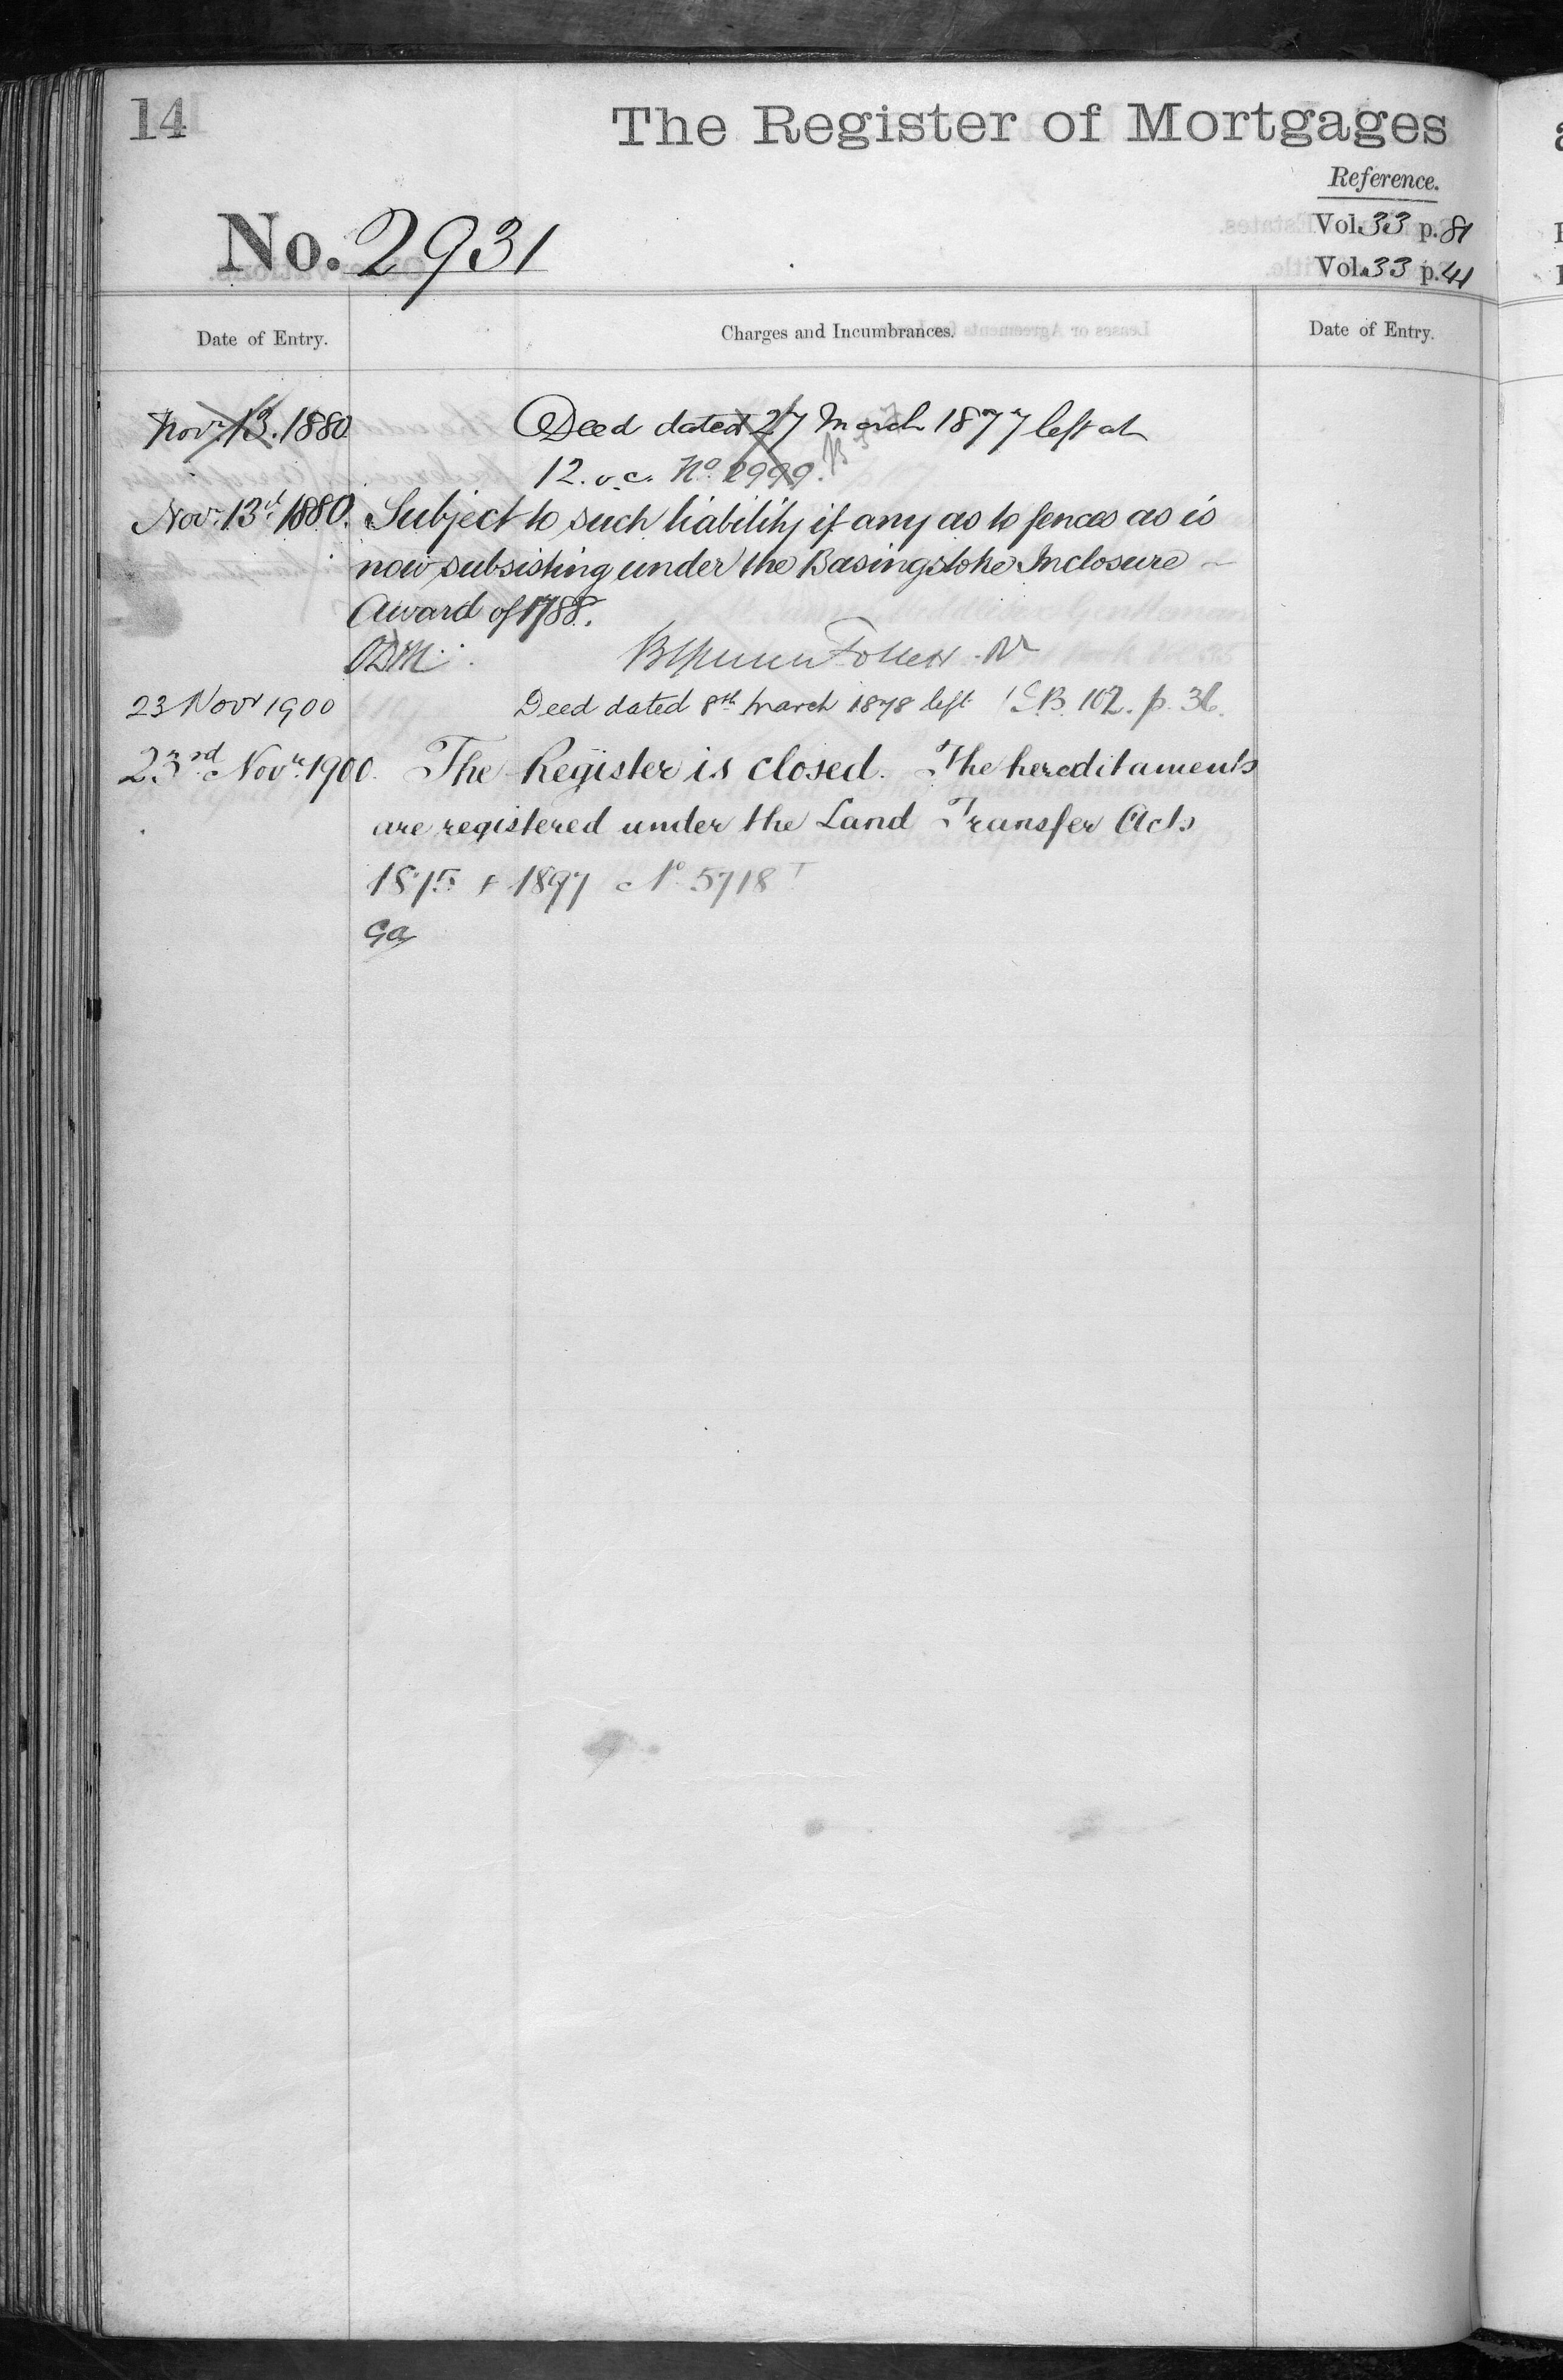 14
The Register of Mortgages
Reference.
No. 2931
Vol. 33 p. 81
Vol. 33 p. 41
Date of Entry.
Charges and Incumbrances.
Date of Entry.
Novr. 13. 1880
Deed dated 27 March 1877 left at
12. o.c. No. 2999.
Novr. 13th 1880. Subject to such liability if any as to fences as is
now subsisting under the Basingstoke Inclosure
Award of 1788.
23 Novr 1900
Deed dated 8th March 1878 left B. 102. p. 36.
23rd Novr. 1900. The Register is closed. The hereditaments
are registered under the Land Transfer Acts
1875 & 1897 No 5718